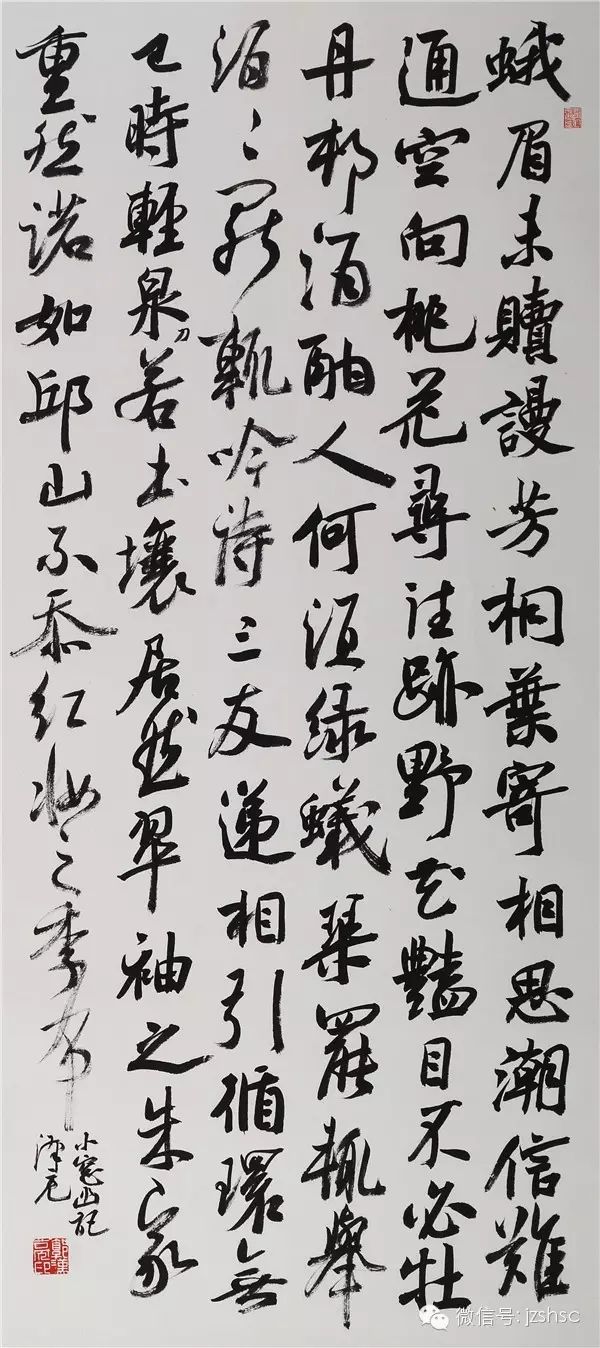 蛾眉未贖謾劳桐葉寄相思潮信難
通空向桃花尋往跡野花豔目不必牡
丹村酒酣人何須绿蟻琴罷輒舉
酒〻罷輒吟詩三友遞相引循環無
已時輕泉刀若土壤居然翠袖之朱家
重然諾如邱山不忝红妝之季布
小窓幽記
澤元
微信号: jzshsc